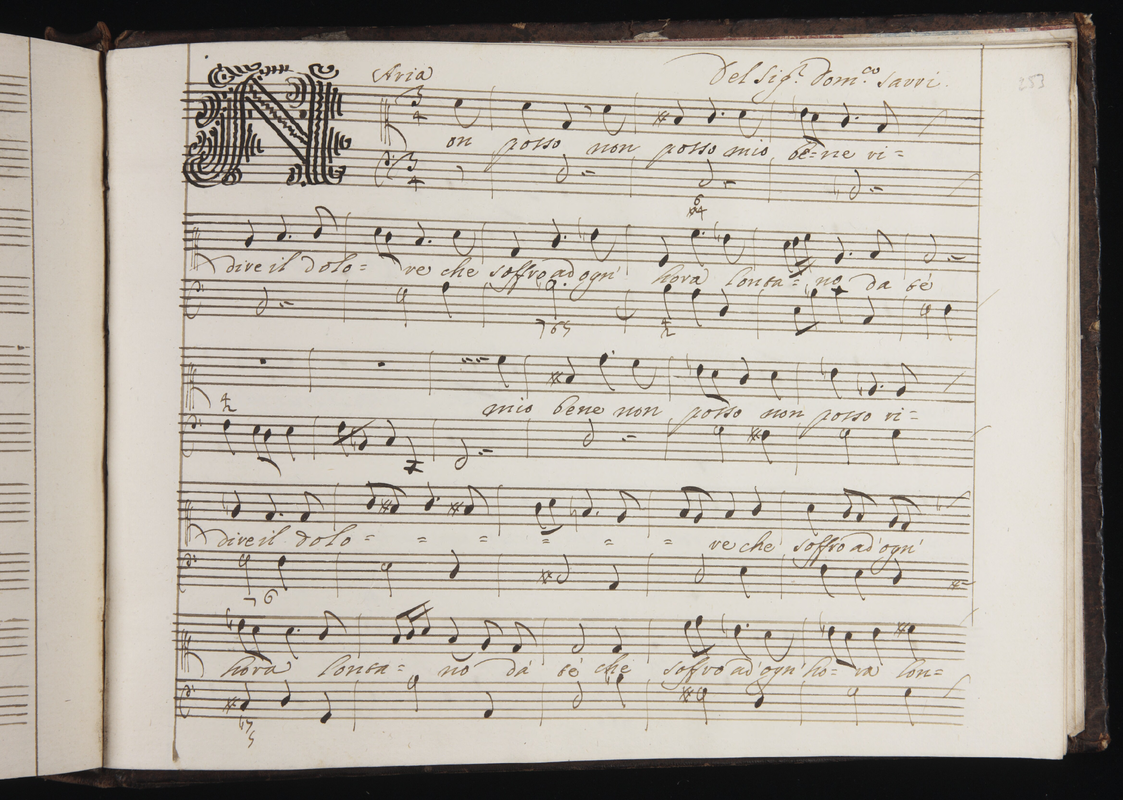 Aria Del Sig.r Dom.co Sarri. 253
Non posso non posso mio be=ne vi=
dire il dolo= re che soffro ad ogn' hora lonta= no da té
mio bene non posso non posso vi=
dire il dolo= = = = = = re che soffro ad'ogn'
hora lonta= no da té che soffro ad'ogn' ho= ra lon=